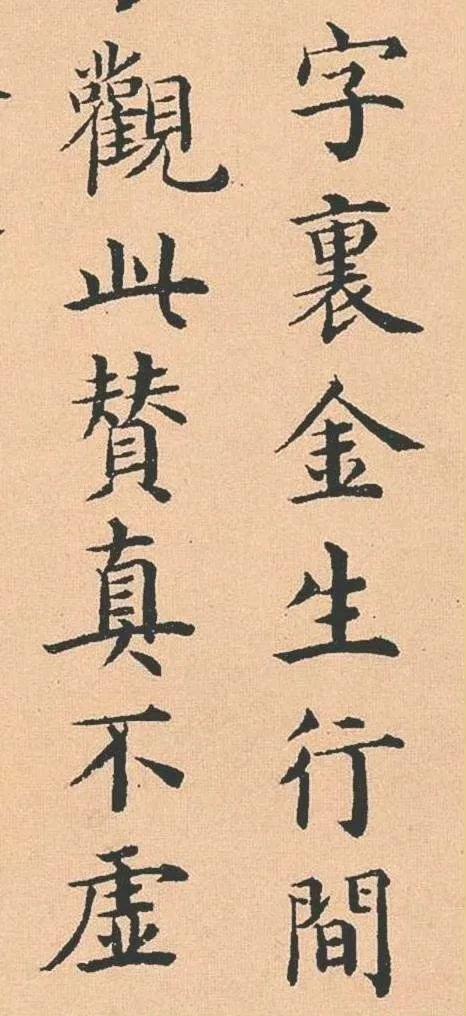 字裏金生行間
觀此賛真不虛